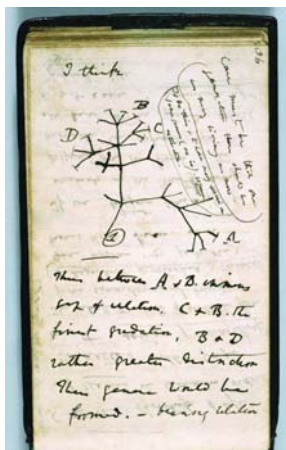 I think
36
Case must be that one
generation then should be
as many living as now
To do this & to have many species in
same genus (as is) requires
extinction.
B
C
D
1
A
Thus between A & B. immens
gap of relation. C & B. the
finest gradation, B & D
rather greater distinction
Thus genera would be
formed. — bearing relation